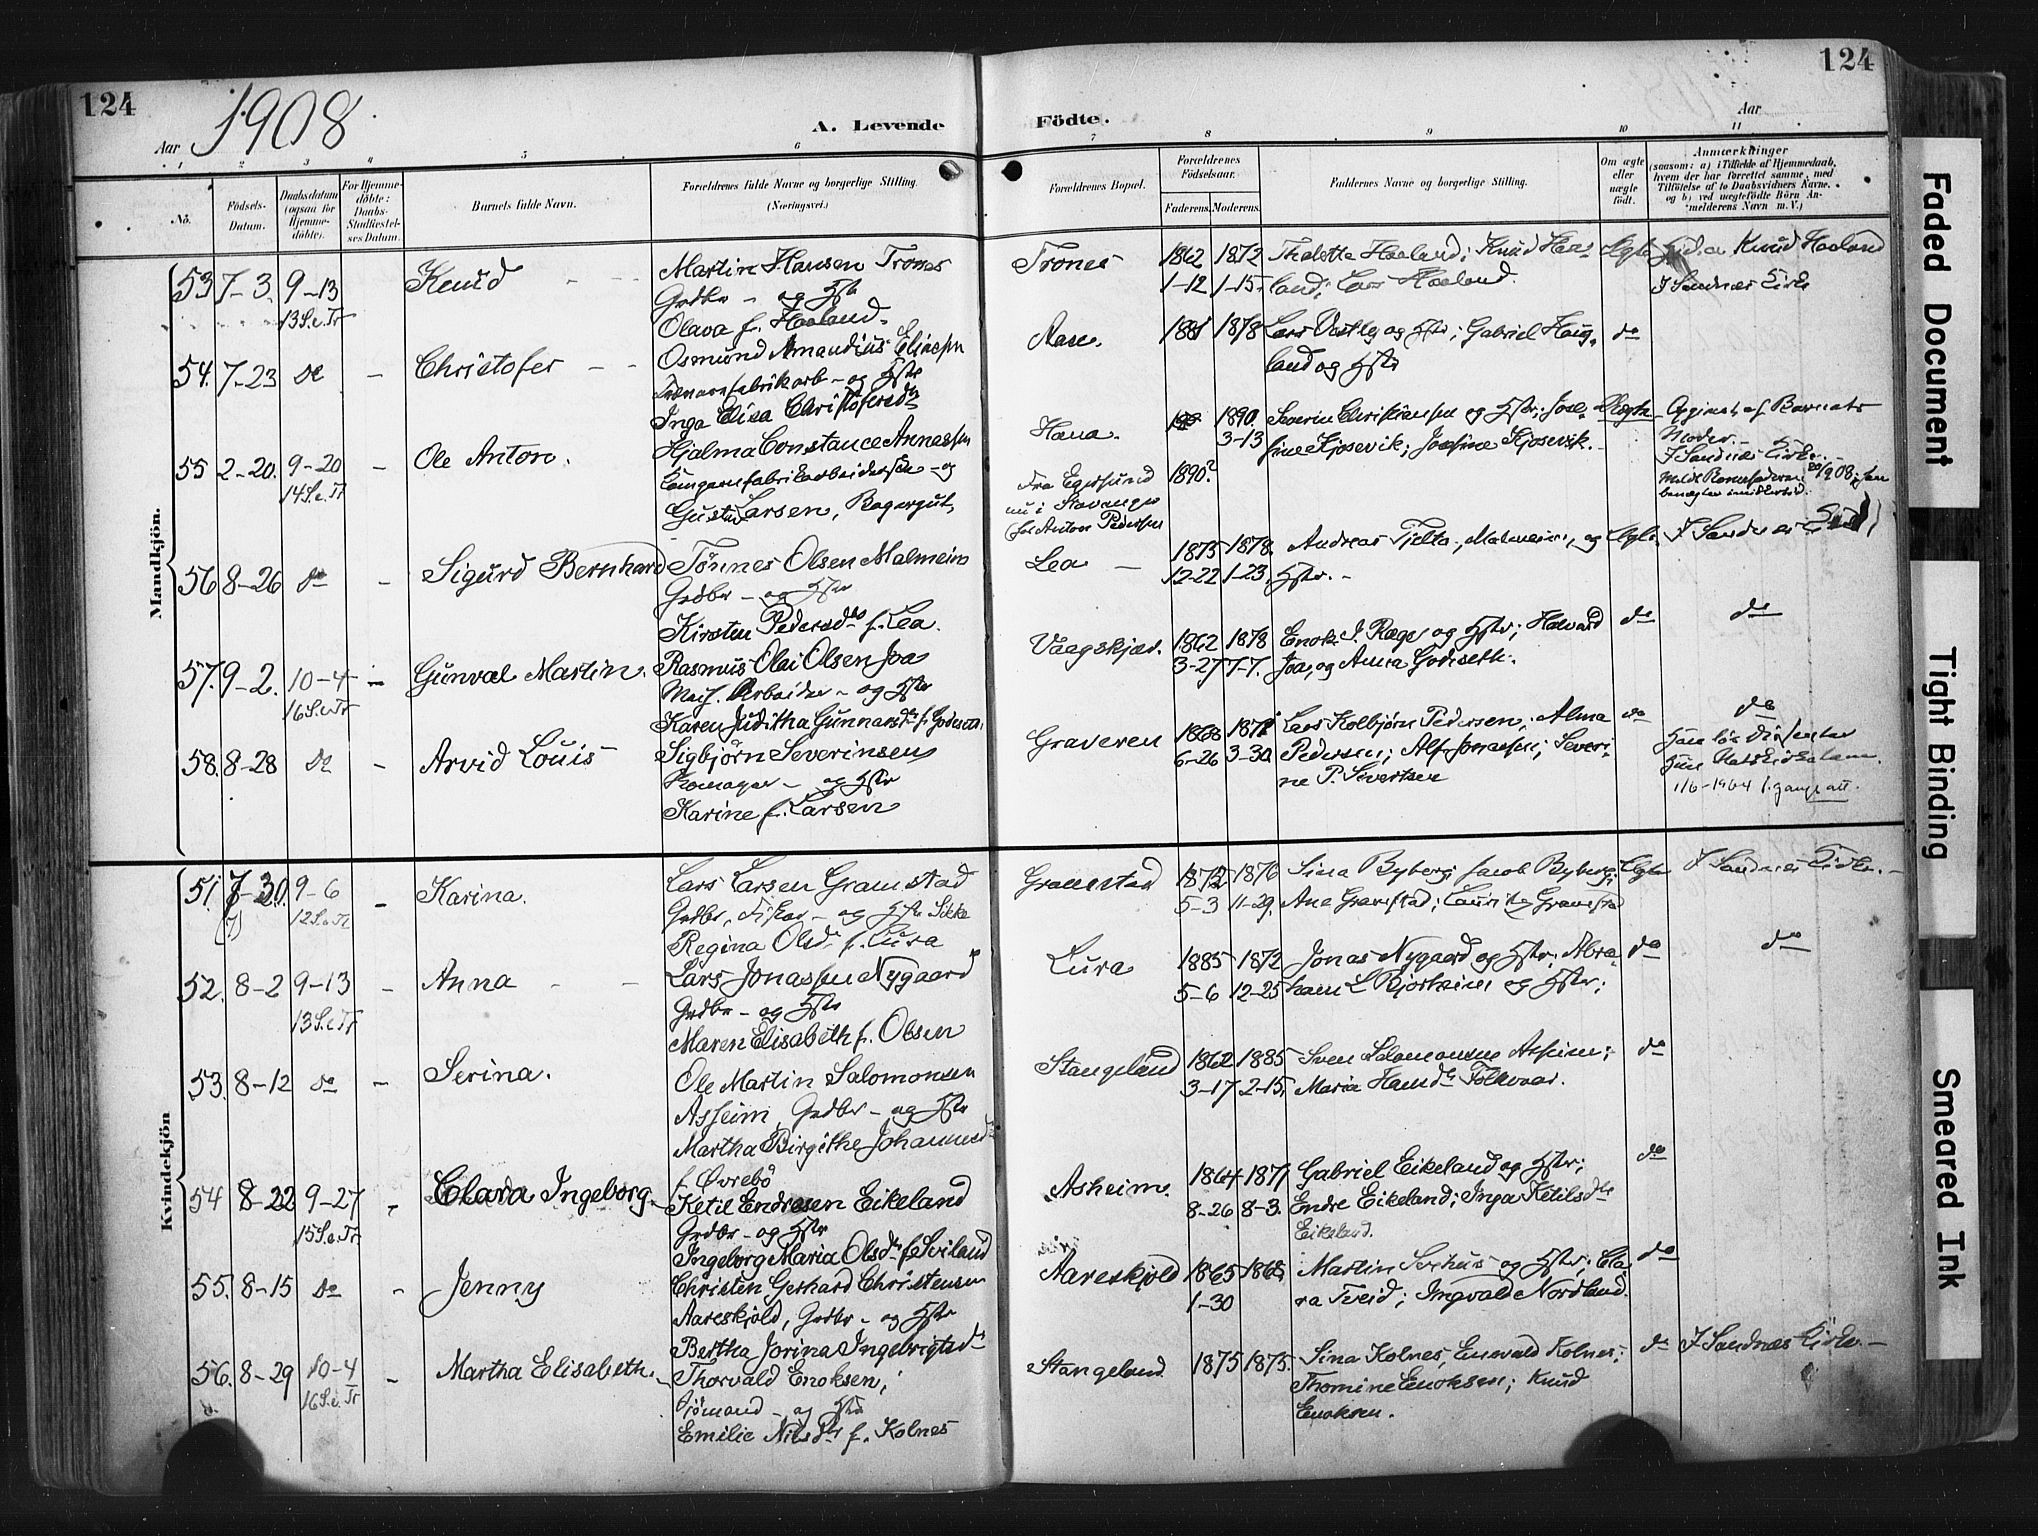 124
1908
Aar
A. Levende
Födte.
Aar
124
1 2 3 4 5 6 7 8 9 10 11
No.
Födsels-Datum.
Daabsdatum (ogsaa for Hjemme-döbte).
For Hjemme-döbte: Daabs-Stadfæstel-ses Datum.
Barnets fulde Navn.
Forældrenes fulde Navne og borgerlige Stilling.
(Næringsvei.)
Forældrenes Bopæl.
Forældrenes Födselsaar.
Faderens. Moderens.
Faddernes Navne og borgerlige Stilling.
Om ægte eller uægte födt.
Anmærkninger
(saasom: a) i Tilfælde af Hjemmedaab, hvem der har forrettet samme, med Tilföielse af to Daabsvidners Navne. og b) ved uægtefödte Börn An-melderens Navn m. V.)
Mandkjön.
53 7-3. 9-13 13 S.e.Tr
Knud
Martin Hansen Trones
Grdbr - og Hstr
Olava f. Haaland.
Trones
1862 1-12
1872 1-15.
Thalette Haaland; Knud Haa-
land; Lars Haaland.
Ægte
Knud Haaland
I Sandnes Kirke
54. 7-23 do -
Christofer
Osmund Amandius Eliasen
og Hstr
Inga Elisa Christofersdtr
Aase.
1881 1878
Lars Vestly og Hstr; Gabriel Haug-
land og Hstr
do
55 2-20. 9-20 - 14 S.e.Tr
Ole Anton.
Hjalma Constance Annassen
og
Gustav Larsen, Bagergut,
Hana.
Fra Egersund
nu i Stavanger
for Anton Pedersen
1890. 3-13
1890?
Severin Christiansen og Hstr; Jose-
fine Kjosevik; Josefine Kjosevik.
Uægte
Opgivet af Barnets
Moder.
I Sandnes Kirke.
20/9 08
56 8-26 do -
Sigurd Bernhard
Tønnes Olsen Malmeim
Grdbr - og Hstr
Kirsten Pedersdtr f. Lea.
Lea
1875 12-22
1878. 1-23.
Andreas Tjelta, Malmeim, og
Hstr. -
Ægte.
I Sandnes Kirke
57. 9-2. 10-4 - 16 S.e.Tr
Gunval Martin.
Rasmus Olai Olsen Joa
Arbeider - og Hstr
Karen Juditha Gunnarsdtr f. Godeset.
Vaagskjær.
1862 3-27
1878 7-7.
Enok J. Rege og Hstr; Halvard
Joa, og Anna Godeseth.
do
do
58. 8-28 do -
Arvid Louis
Sigbjørn Severinsen
og Hstr
Karine f. Larsen
Graveren
1868 6-26
1871 3-30.
Lars Kolbjørn Pedersen; Alma
Pedersen; Alf Jonassen; Severi-
ne P. Sivertsen
do
do
1/6-1964 f. gangs att.
Kvindekjön
51. 7-30. (7) 9-6 - 12 S.e.Tr
Karina.
Lars Larsen Gramstad
Grdbr, Fisker - og Hstr Sikke
Regina Olsdr f. Lura
Gramstad
1872 5-3
1876 11-29.
Sina Byberg; Jacob Byberg;
Ane Gramstad; Lauritz Gramstad
Ægte
I Sandnes Kirke. -
52. 8-2 9-13 - 13 S.e.Tr
Anna
Lars Jonassen Nygaard
Grdbr - og Hstr
Maren Elisabeth f. Olsen
Lura
1885 5-6
1872 12-25
Jonas Nygaard og Hstr; Abra-
ham L Bjorheim og Hstr;
do
do
53. 8-12 do -
Serina.
Ole Martin Salomonsen
Asheim, Grdbr - og Hstr
Martha Birgithe Johannesdtr
f. Øvrebö
Stangeland
1862 3-17
1885 2-15.
Sven Salomonsen Asheim;
Maria Hansdtr Folkvaar.
do
54 8-22 9-27 - 15 S.e.Tr
Clara Ingeborg
Ketil Endresen Eikeland
Grdbr - og Hstr
Ingeborg Maria Olsdtr f. Sviland
Asheim.
1864 8-26
1871 8-3.
Gabriel Eikeland og Hstr;
Endre Eikeland; Inga Ketilsdtr
Eikeland.
do
55. 8-15 do -
Jenny
Christen Gerhard Christensen
Aareskjold, Grdbr - og Hstr
Bertha Jorina Ingebrigtsdr
Aareskjold
1865 1-30
1868.
Martin Sørhus og Hstr; Cla-
ra Tveid; Ingvald Nordland.
do
56. 8-29 10-4 - 16 S.e.Tr
Martha Elisabeth.
Thorvald Enoksen,
Sjømand - og Hstr
Emilie Nilsdtr f. Kolnes
Stangeland
1875 1875.
Sina Kolnes, Enevald Kolnes;
Thomine Enoksen; Knud
Enoksen.
do
I Sandnes Kirke -
Faded Document
Tight Binding
Smeared Ink